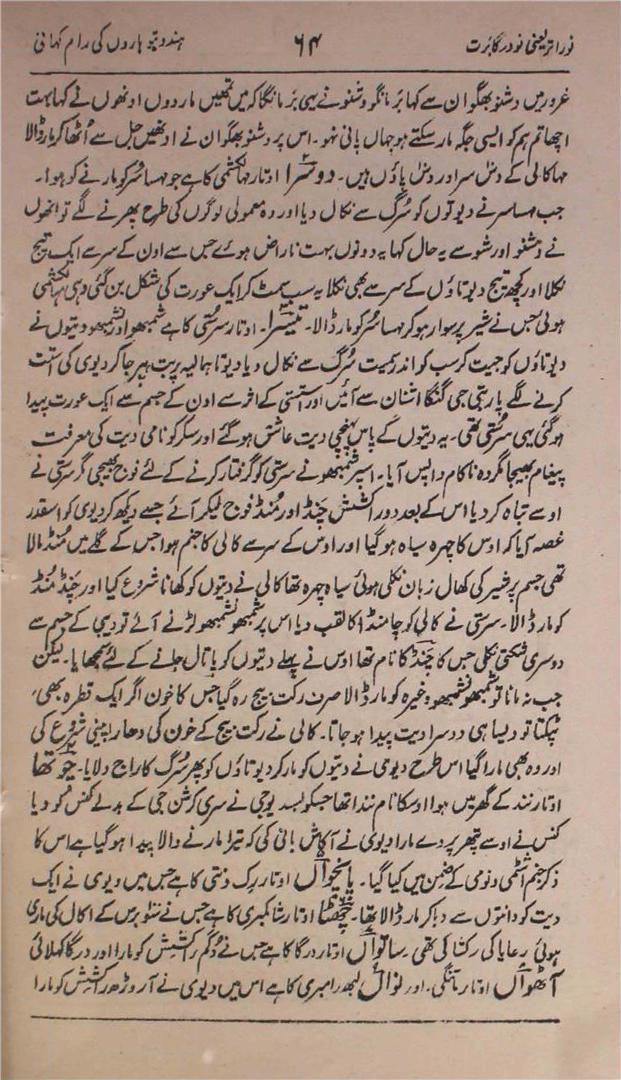 نوراتر یعنی نودرگا برت ۶۴ ہندو تیوہاروں کی رام کہانی
غرور میں دشنو بھگوان سے کہا بر مانگو وشنو نے یہی بر مانگا کہ میں تمھیں مار دوں اونھوں نے کہا بہت
اچھا تم ہم کو ایسی جگہ مار سکتے ہو جہاں پانی نہو۔ اس پر دشنو بھگوان نے اونھیں جل سے اُٹھا کر مار ڈالا
مہاکالی کے دس سر اور دس پاؤں ہیں۔ دوسرا اوتار مہالکشمی کا ہے جو مہساسُر کو مارنے کو ہوا۔
جب مہاسر نے دیوتوں کو سُرگ سے نکال دیا اور وہ معمولی لوگوں کی طرح پھرنے لگے تو انھوں
نے دشنو اور شو سے یہ حال کہا یہ دونوں بہت ناراض ہوے جس سے اون کے سر سے ایک تیج
نکلا اور کچھ تیج دیوتاؤں کے سر سے بھی نکلا یہ سب سمٹ کر ایک عورت کی شکل بن گئی وہی مہالکشمی
ہوئی جس نے شیر پر سوار ہو کر مہساسُر کو مار ڈالا۔ تیسرا۔ اوتار سرستی کا ہے شمبھو اور نشمبھو دیتوں نے
دیوتاؤں کو جیت کر سب کو اندر سمیت سُرگ سے نکال دیا دیوتا ہمالیہ پربت پر جا کر دیوی کی استت
کرنے لگے پاربتی جی گنگا اشنان سے آئیں اور استتی کے اثر سے اون کے جسم سے ایک عورت پیدا
ہو گئی یہی سرستی تھی۔ یہ دیتوں کے پاس پہنچی دیت عاشق ہو گئے اور سکر کو نامی دیت کی معرفت
پیغام بھیجا مگر وہ ناکام واپس آیا۔ اسپر شمبھو نے سرستی کو گرفتار کرنے کے لئے فوج بھیجی مگر سرستی نے
اوسے تباہ کر دیا اس کے بعد دو راکشش چنڈ اور مُنڈ فوج لیکر آئے جسے دیکھ کر دیوی کو اسقدر
غصہ آیا کہ اوس کا چہرہ سیاہ ہو گیا اور اوس کے سر سے کالی کا جنم ہوا جس کے گلے میں مُنڈ مالا
تھی جسم پر شیر کی کھال زبان نکلی ہوئی سیاہ چہرہ تھا کالی نے دیتوں کو کھانا شروع کیا اور چنڈ مُنڈ
کو مار ڈالا۔ سرستی نے کالی کو چامنڈا کا لقب دیا اس پر شمبھو نشمبھو لڑنے آئے تو دیبی کے جسم سے
دوسری شکتی نکلی جس کا چنڈ کا نام تھا اوس نے پہلے دیتوں کو پاتال جانے کے لئے سمجھایا۔ لیکن
جب نہ مانا تو شمبھو نشمبھو وغیرہ کو مار ڈالا صرف رکت بیج رہ گیا جس کا خون اگر ایک قطرہ بھی
ٹپکتا تو ویسا ہی دوسرا دیت پیدا ہو جاتا۔ کالی نے رکت بیج کے خون کی دھار اپنی شروع کی
اور وہ بھی مارا گیا اس طرح دیومی نے دیتوں کو مار کر دیوتاؤں کو پھر سُرگ کا راج دلایا۔ چوتھا
اوتار نند کے گھر میں ہوا اوسکا نام نندا تھا جسکو بسدیوجی نے سری کرشن جی کے بدلے کنس کو دیا
کنس نے اوسے پتھر پر دے مارا دیوی نے آکاش بانی کی کہ تیرا مارنے والا پیدا ہو گیا ہے اس کا
ذکر جنم اشٹمی و نومی کے ضمن میں کیا گیا۔ پانچواں اوتار رک دنتی کا ہے جس میں دیوی نے ایک
دیت کو دانتوں سے دبا کر مار ڈالا تھا۔ چھٹا اوتار شاکمبری کا ہے جس نے سو برس کے اکال کی ماری
ہوئی رعایا کی رکشا کی تھی۔ ساتواں اوتار درگا کا ہے جس نے دُگم راکشش کو مارا اور درگا کہلائی
آٹھواں اوتار ماتنگی۔ اور نواں بھرامبری کا ہے اس میں دیوی نے آروڑھ راکشش کو مارا